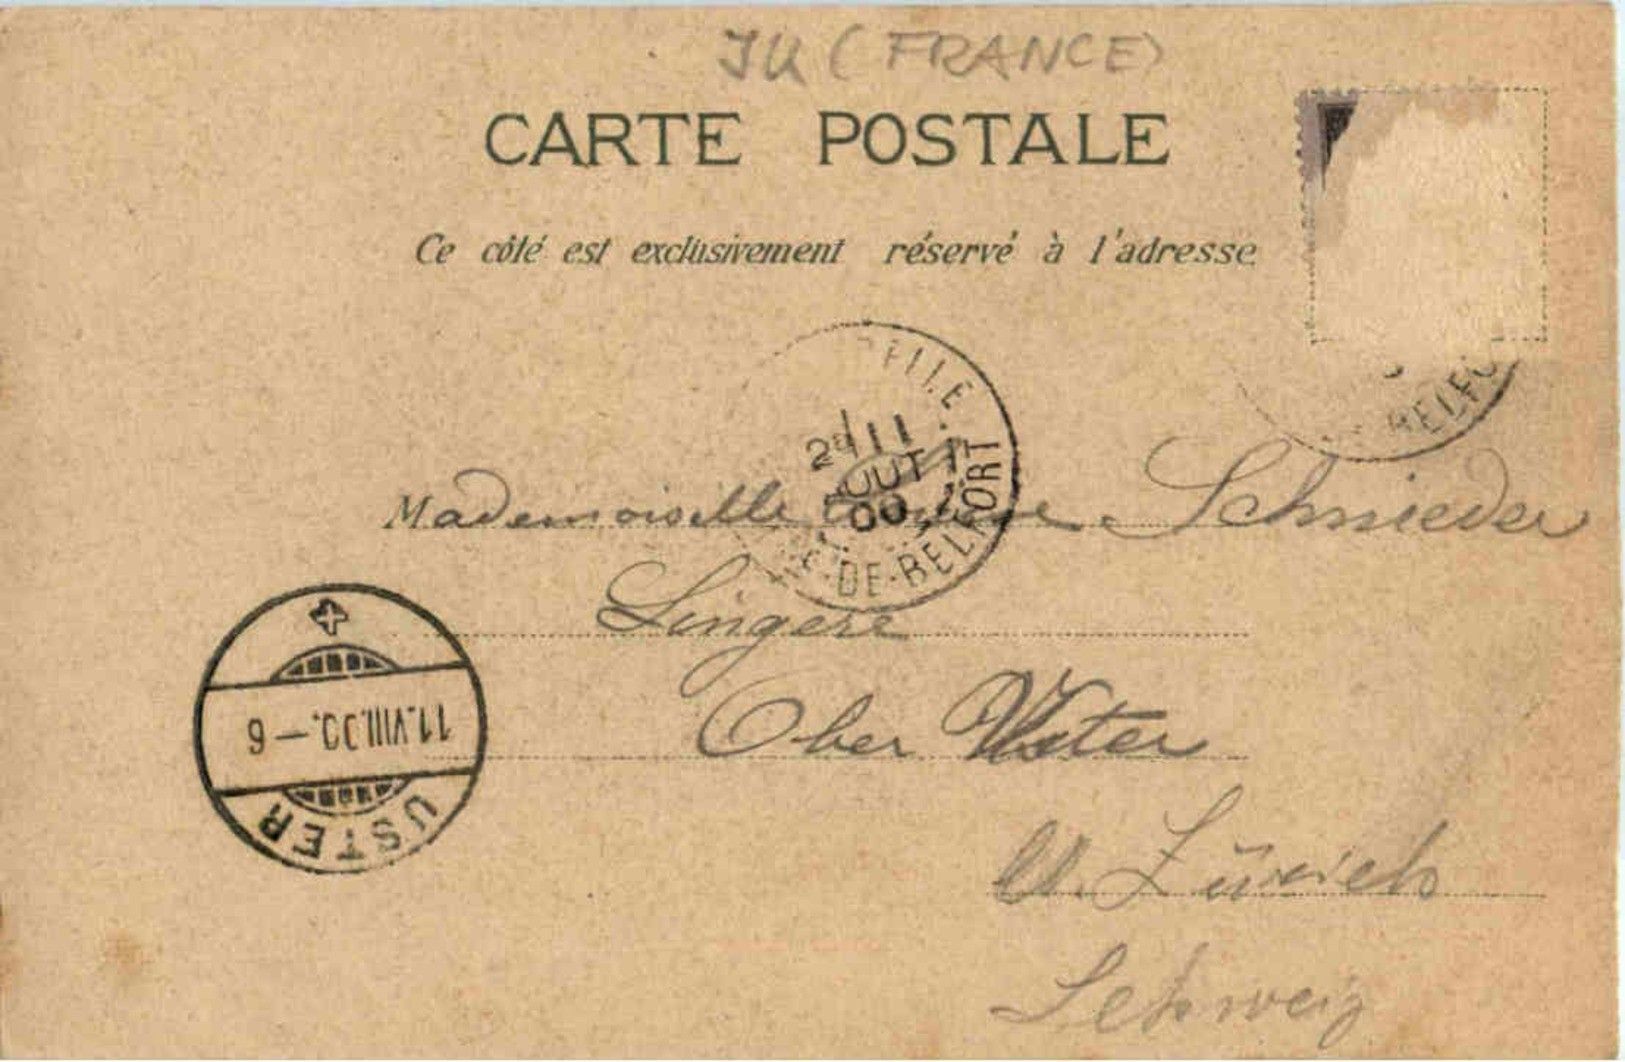 JU (FRANCE)
CARTE POSTALE
Ce côté est exclusivement réservé à l'adresse
BELFO
ELLE
2E 11
AOUT
00
DE-BELFORT
Mademoiselle Schnieder
Lingère
Ober Uster
Ct. Zürich
Schweiz
11.VIII.00.–6
USTER